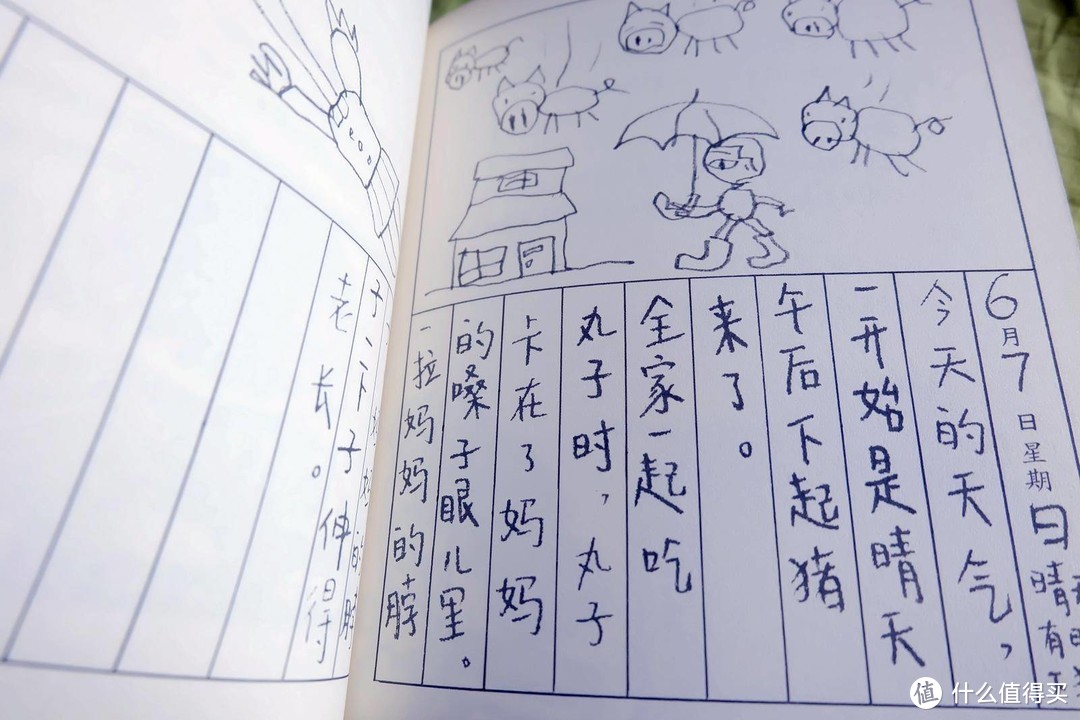 6月7日星期日
晴
有
今天的天气，
一开始是晴天
午后下起猪
来了。
全家一起吃
丸子时，丸子
卡在了妈妈
的嗓子眼儿里。
一拉妈妈的脖
的脖
下子伸得
老长。
值 什么值得买